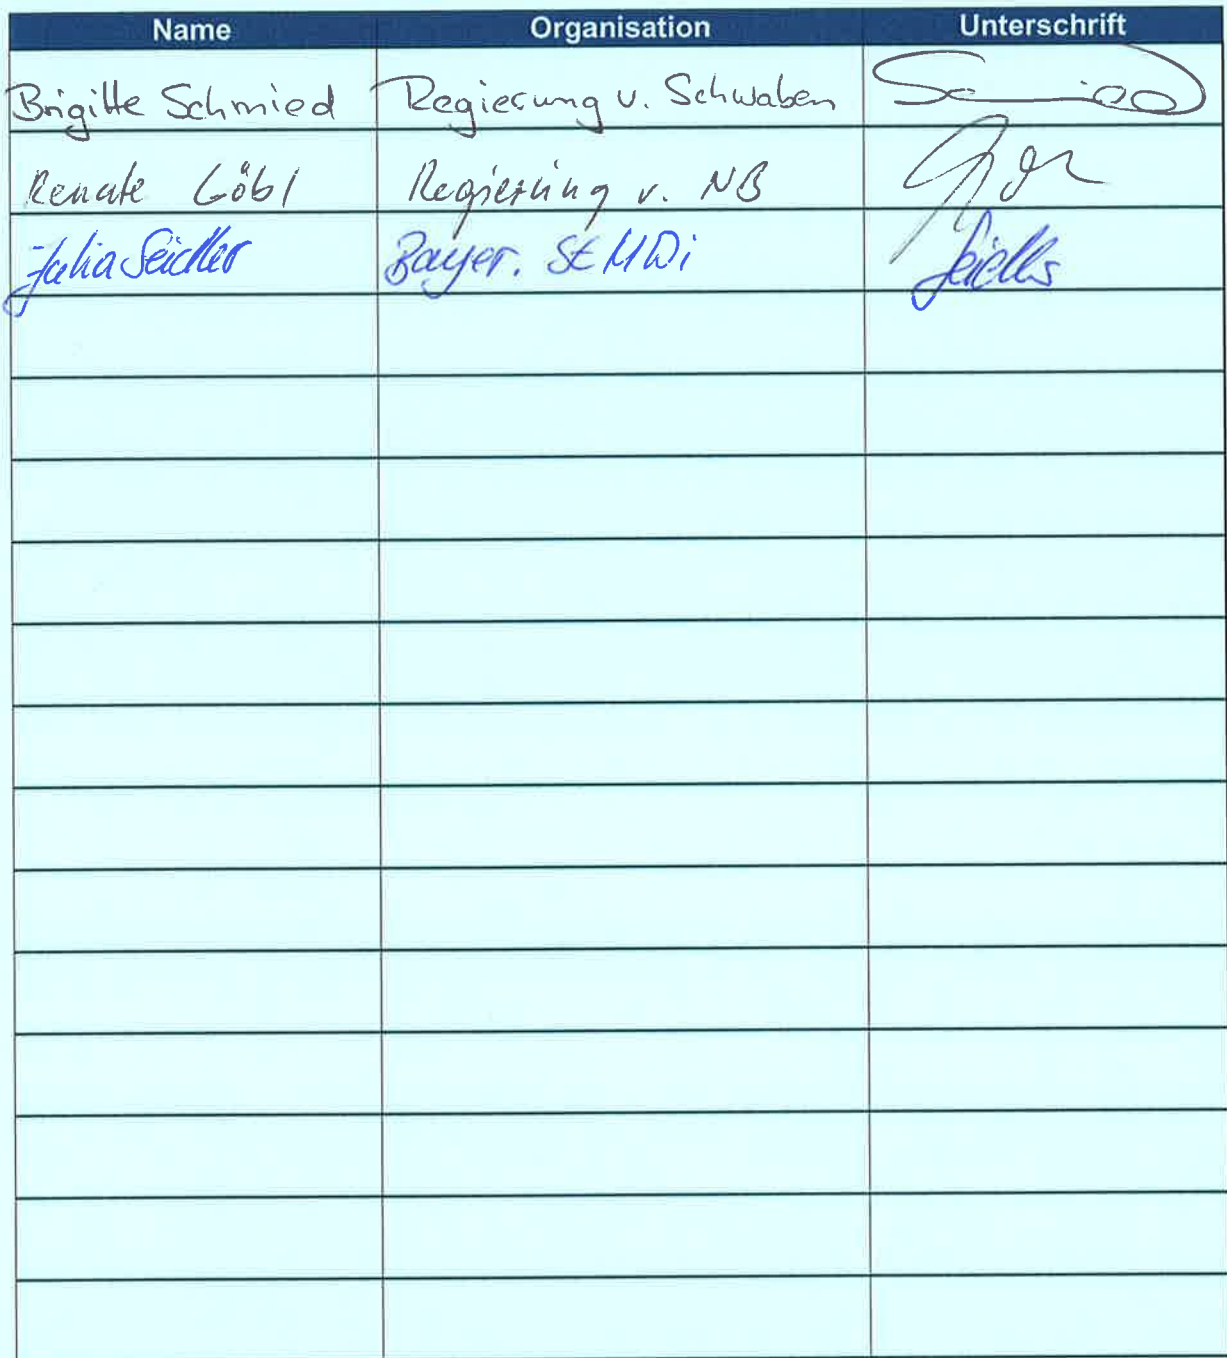 Name Organisation Unterschrift
Brigitte Schmied Regierung v. Schwaben
Renate Göbl Regierung v. NB
Julia Seidler Bayer. StMWi Seidler